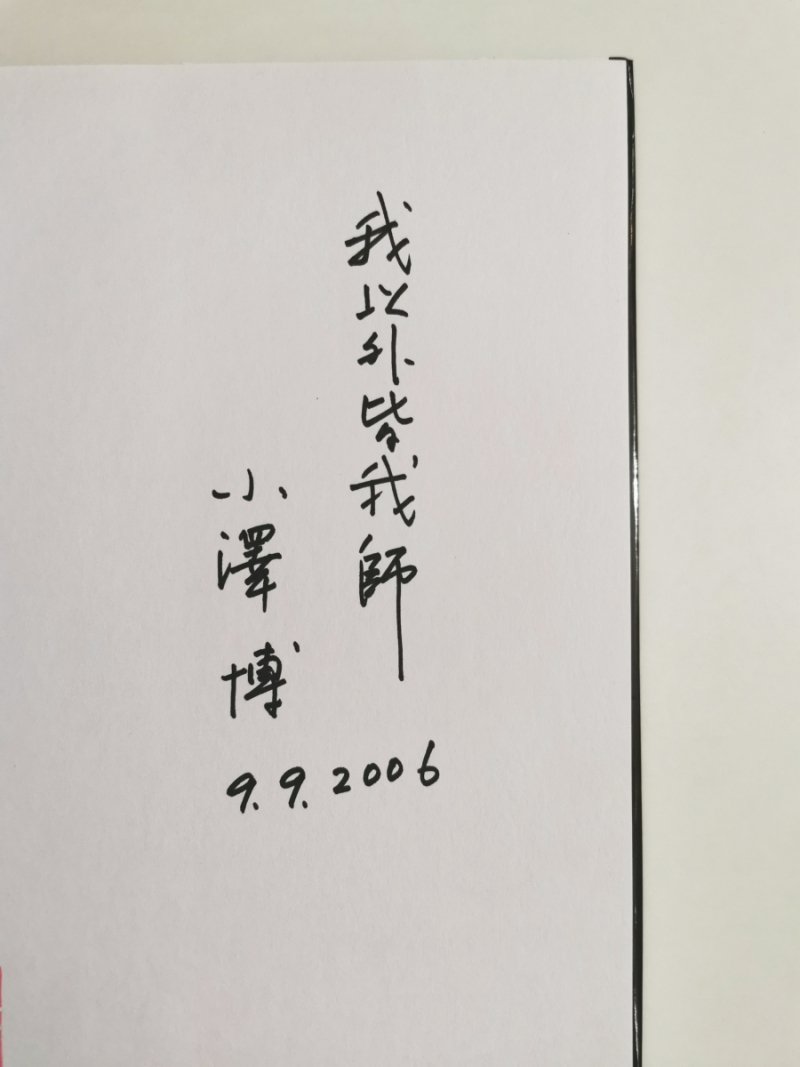 我以外皆我師
小澤博
9.9.2006